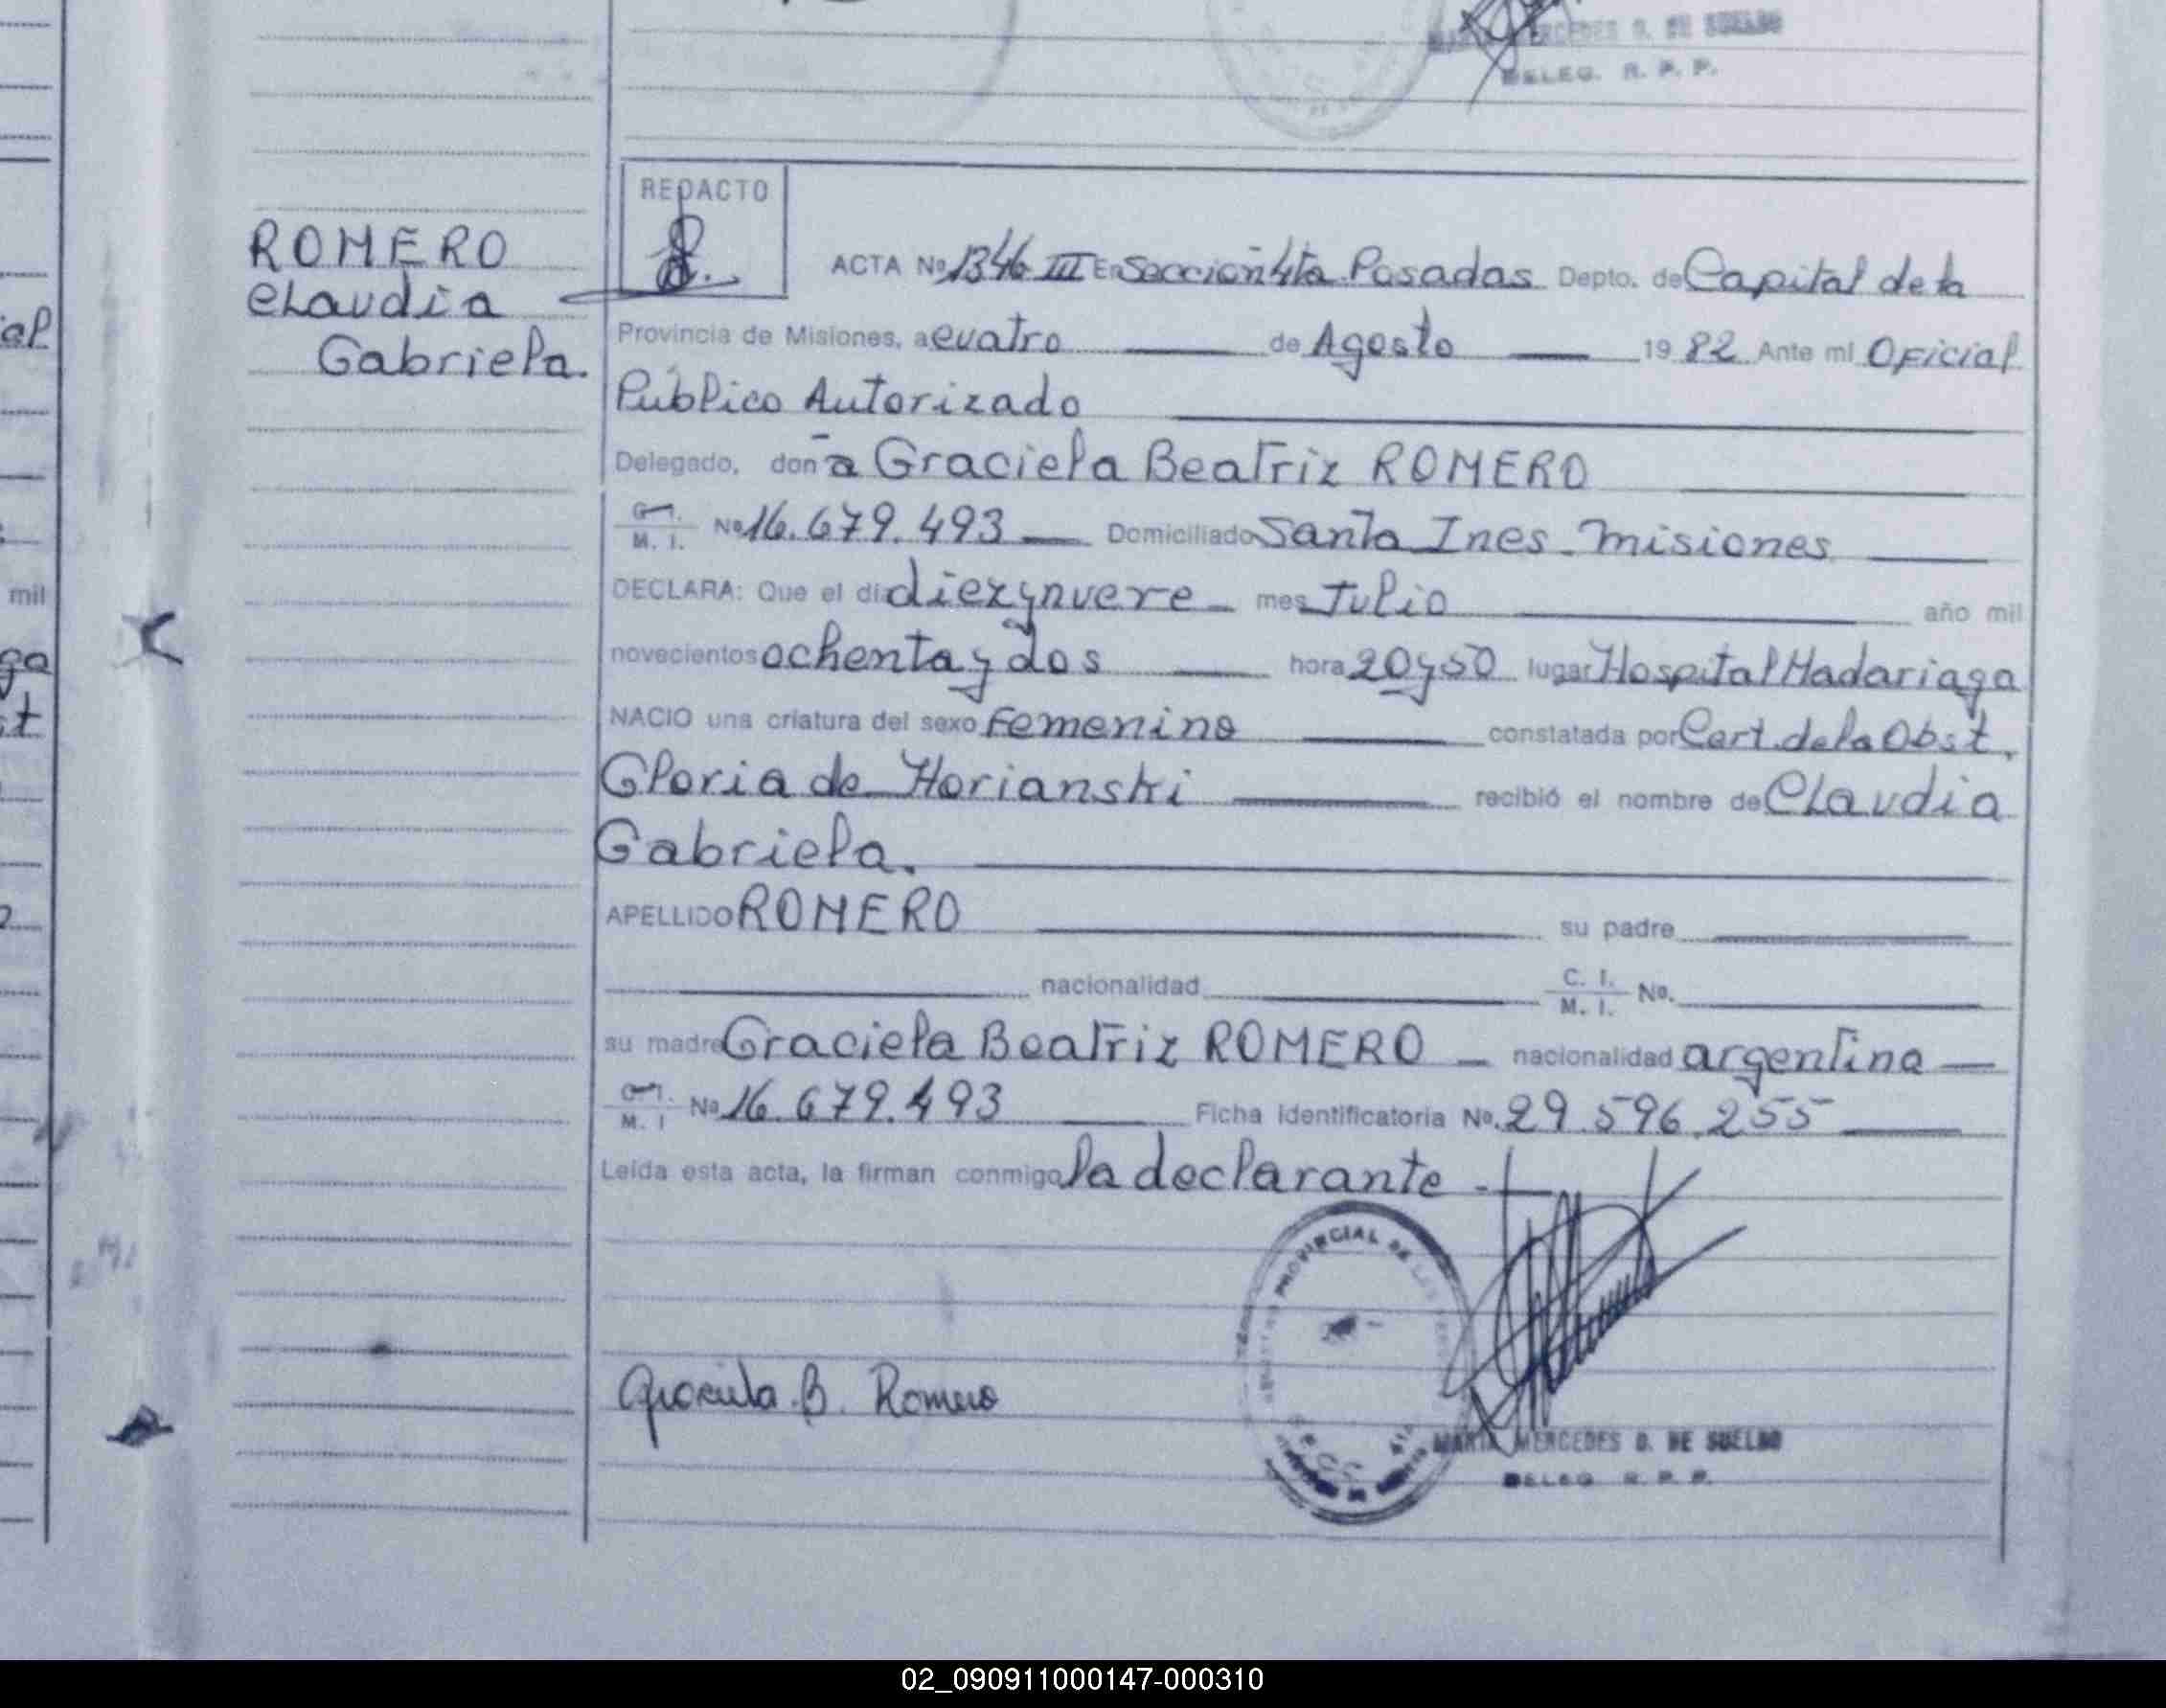 MERCEDES D. DE SUELDO
DELEG. R. P. P.
REDACTO
ROMERO
Claudia
Gabriela.
ACTA Nº 1346 III En Sección 4ta. Posadas Depto. de Capital de la
Provincia de Misiones, a cuatro de Agosto 1982 Ante mi Oficial
Público Autorizado
Delegado, don a Graciela Beatriz ROMERO
M. I. Nº 16.679.493 Domiciliado Santa Ines - Misiones
DECLARA: Que el di diez y nueve mes Julio año mil
novecientos ochenta y dos hora 20 y 50 lugar Hospital Madariaga
NACIO una criatura del sexo femenino constatada por Cert. de la Obst.
Gloria de Horianski recibió el nombre de Claudia
Gabriela.
APELLIDO ROMERO su padre
nacionalidad C. I. M. I. Nº.
su madre Graciela Beatriz ROMERO nacionalidad argentina
M. I Nº 16.679.493 Ficha identificatoria Nº. 29.596.255
Leída esta acta, la firman conmigo la declarante -
PROVINCIAL DE
Graciela B. Romero
MARIA MERCEDES D. DE SUELDO
DELEG. R. P. P.
mil
02_090911000147-000310